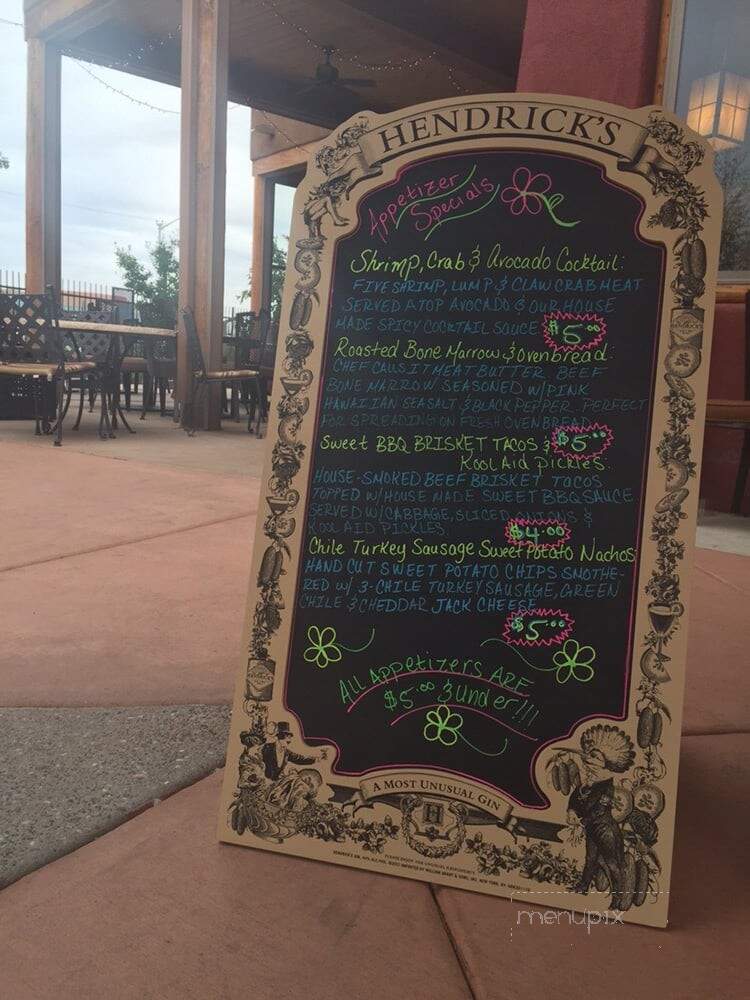 HENDRICK'S
Appetizer
Specials
Shrimp, Crab & Avocado Cocktail:
FIVE SHRIMP, LUMP & CLAW CRAB MEAT
SERVED ATOP AVOCADO & OUR HOUSE
MADE SPICY COCKTAIL SAUCE $5.00
Roasted Bone Marrow & Ovenbread:
CHEF CALLS IT MEAT BUTTER. BEEF
BONE MARROW SEASONED W/PINK
HAWAIIAN SEA SALT & BLACK PEPPER. PERFECT
FOR SPREADING ON FRESH OVEN BREAD $5.00
Sweet BBQ BRISKET TACOS &
Kool Aid Pickles:
HOUSE-SMOKED BEEF BRISKET TACOS
TOPPED W/HOUSE MADE SWEET BBQ SAUCE
SERVED W/CABBAGE, SLICED ONIONS &
KOOL AID PICKLES $4.00
Chile Turkey Sausage Sweet Potato Nachos
HAND CUT SWEET POTATO CHIPS SMOTHE-
RED W/ 3-CHILE TURKEY SAUSAGE, GREEN
CHILE & CHEDDAR JACK CHEESE
$5.00
All Appetizers ARE
$5.00 & under!!!
A MOST UNUSUAL GIN
H
menupix